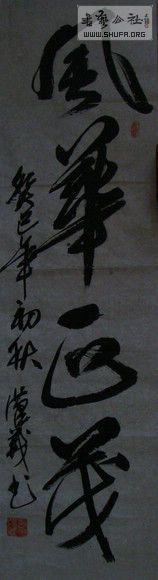 書藝公社
WWW.SHUFA.ORG
風華正茂
癸巳年初秋